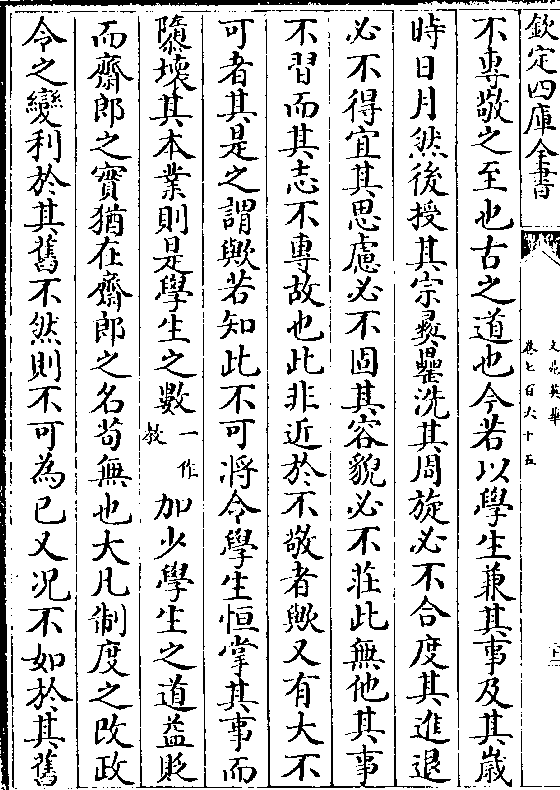 欽定四庫全書
文苑英華
卷七百六十五
三
不專敬之至也古之道也今若以學生兼其事及其歲
時日月然後授其宗彛罍洗其周旋必不合度其進退
必不得宜其思慮必不固其容貌必不莊此無他其事
不習而其志不專故也此非近於不敬者歟又有大不
可者其是之謂歟若知此不可將令學生恒掌其事而
隳壞其本業則是學生之數一作教加少學生之道益貶
而齋郎之實猶在齋郎之名茍無也大凡制度之改政
令之變利於其舊不然則不可為已又况不如於其舊